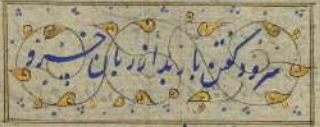 سرود گفتن باربد از زبان خسرو